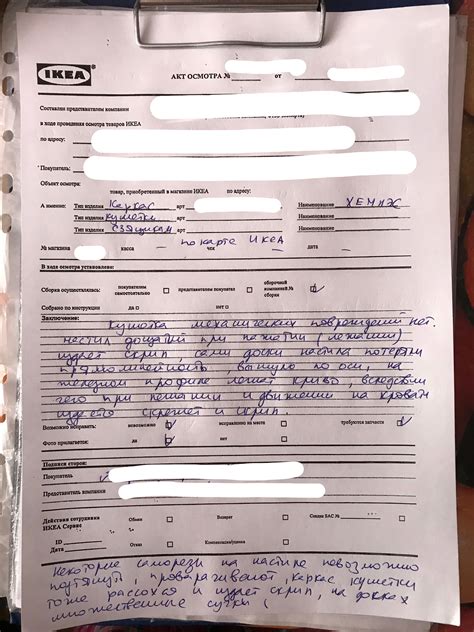 IKEA
АКТ ОСМОТРА № от
Составлен представителем компании
в ходе проведения осмотра товаров ИКЕА
по адресу:
Покупатель:
Объект осмотра: товар, приобретенный в магазине ИКЕА по адресу:
А именно: Тип изделия Каркас арт Наименование ХЕМНЭС
Тип изделия кушетки арт Наименование
Тип изделия с 3 ящикам арт Наименование
№ магазина касса – по карте ИКЕА чек дата –
В ходе осмотра установлено:
Сборка осуществлялась: покупателем самостоятельно представителем покупателя сборочной компанией № сборки
Собрано по инструкции да нет
Заключение: Кушетка механических повреждений нет.
настил дощатый при нажатии (лежании)
издает скрип, сами доски настила потеряли
прямолинейность выгнуло по оси, на
железном профиле лежат криво, вследствии
чего при лежании и движении на кровати
издется скрежет и скрип.
Возможно исправить: невозможно исправлено на месте требуются запчасти
Фото прилагается: да нет
Подписи сторон:
Покупатель
Представитель компании
Действия сотрудника ИКЕА Сервис Обмен Возврат Создан SAC №
ID
Дата Отказ Компенсация/уценка
Некоторые саморезы на настиле невозможно
подтянуть, проварачивают, каркас кушетки
тоже рассохся и издает скрип, на
множественные